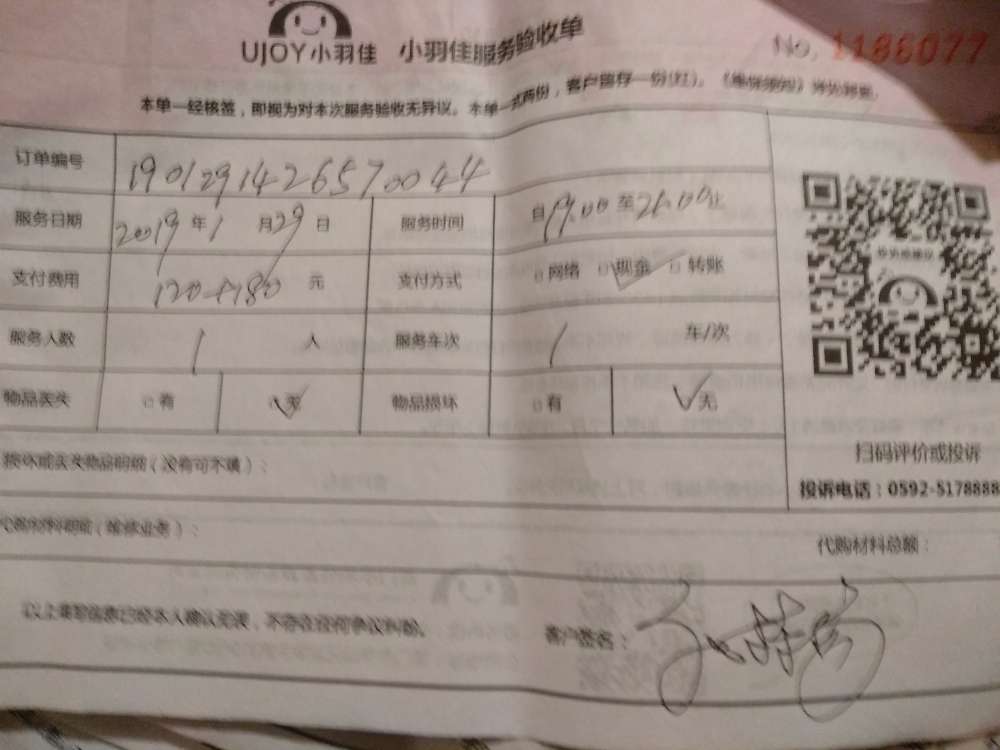 UJOY小羽佳 小羽佳服务验收单 No. 1186077
本单一经核签，即视为对本次服务验收无异议。本单一式两份，客户留存一份(红)。
订单编号 1901291426570044
服务日期 2019年1月29日 服务时间
支付费用 120+180 元 支付方式 网络 现金 转账
服务人数 1 人 服务车次 1 车/次
物品丢失 有 无 物品损坏 有 无
损坏或丢失物品明细（没有可不填）：
扫码评价或投诉
投诉电话：0592-5178888
代购材料明细（维修业务）：
代购材料总额：
以上填写信息已经本人确认无误，不存在任何争议纠纷。
客户签名：